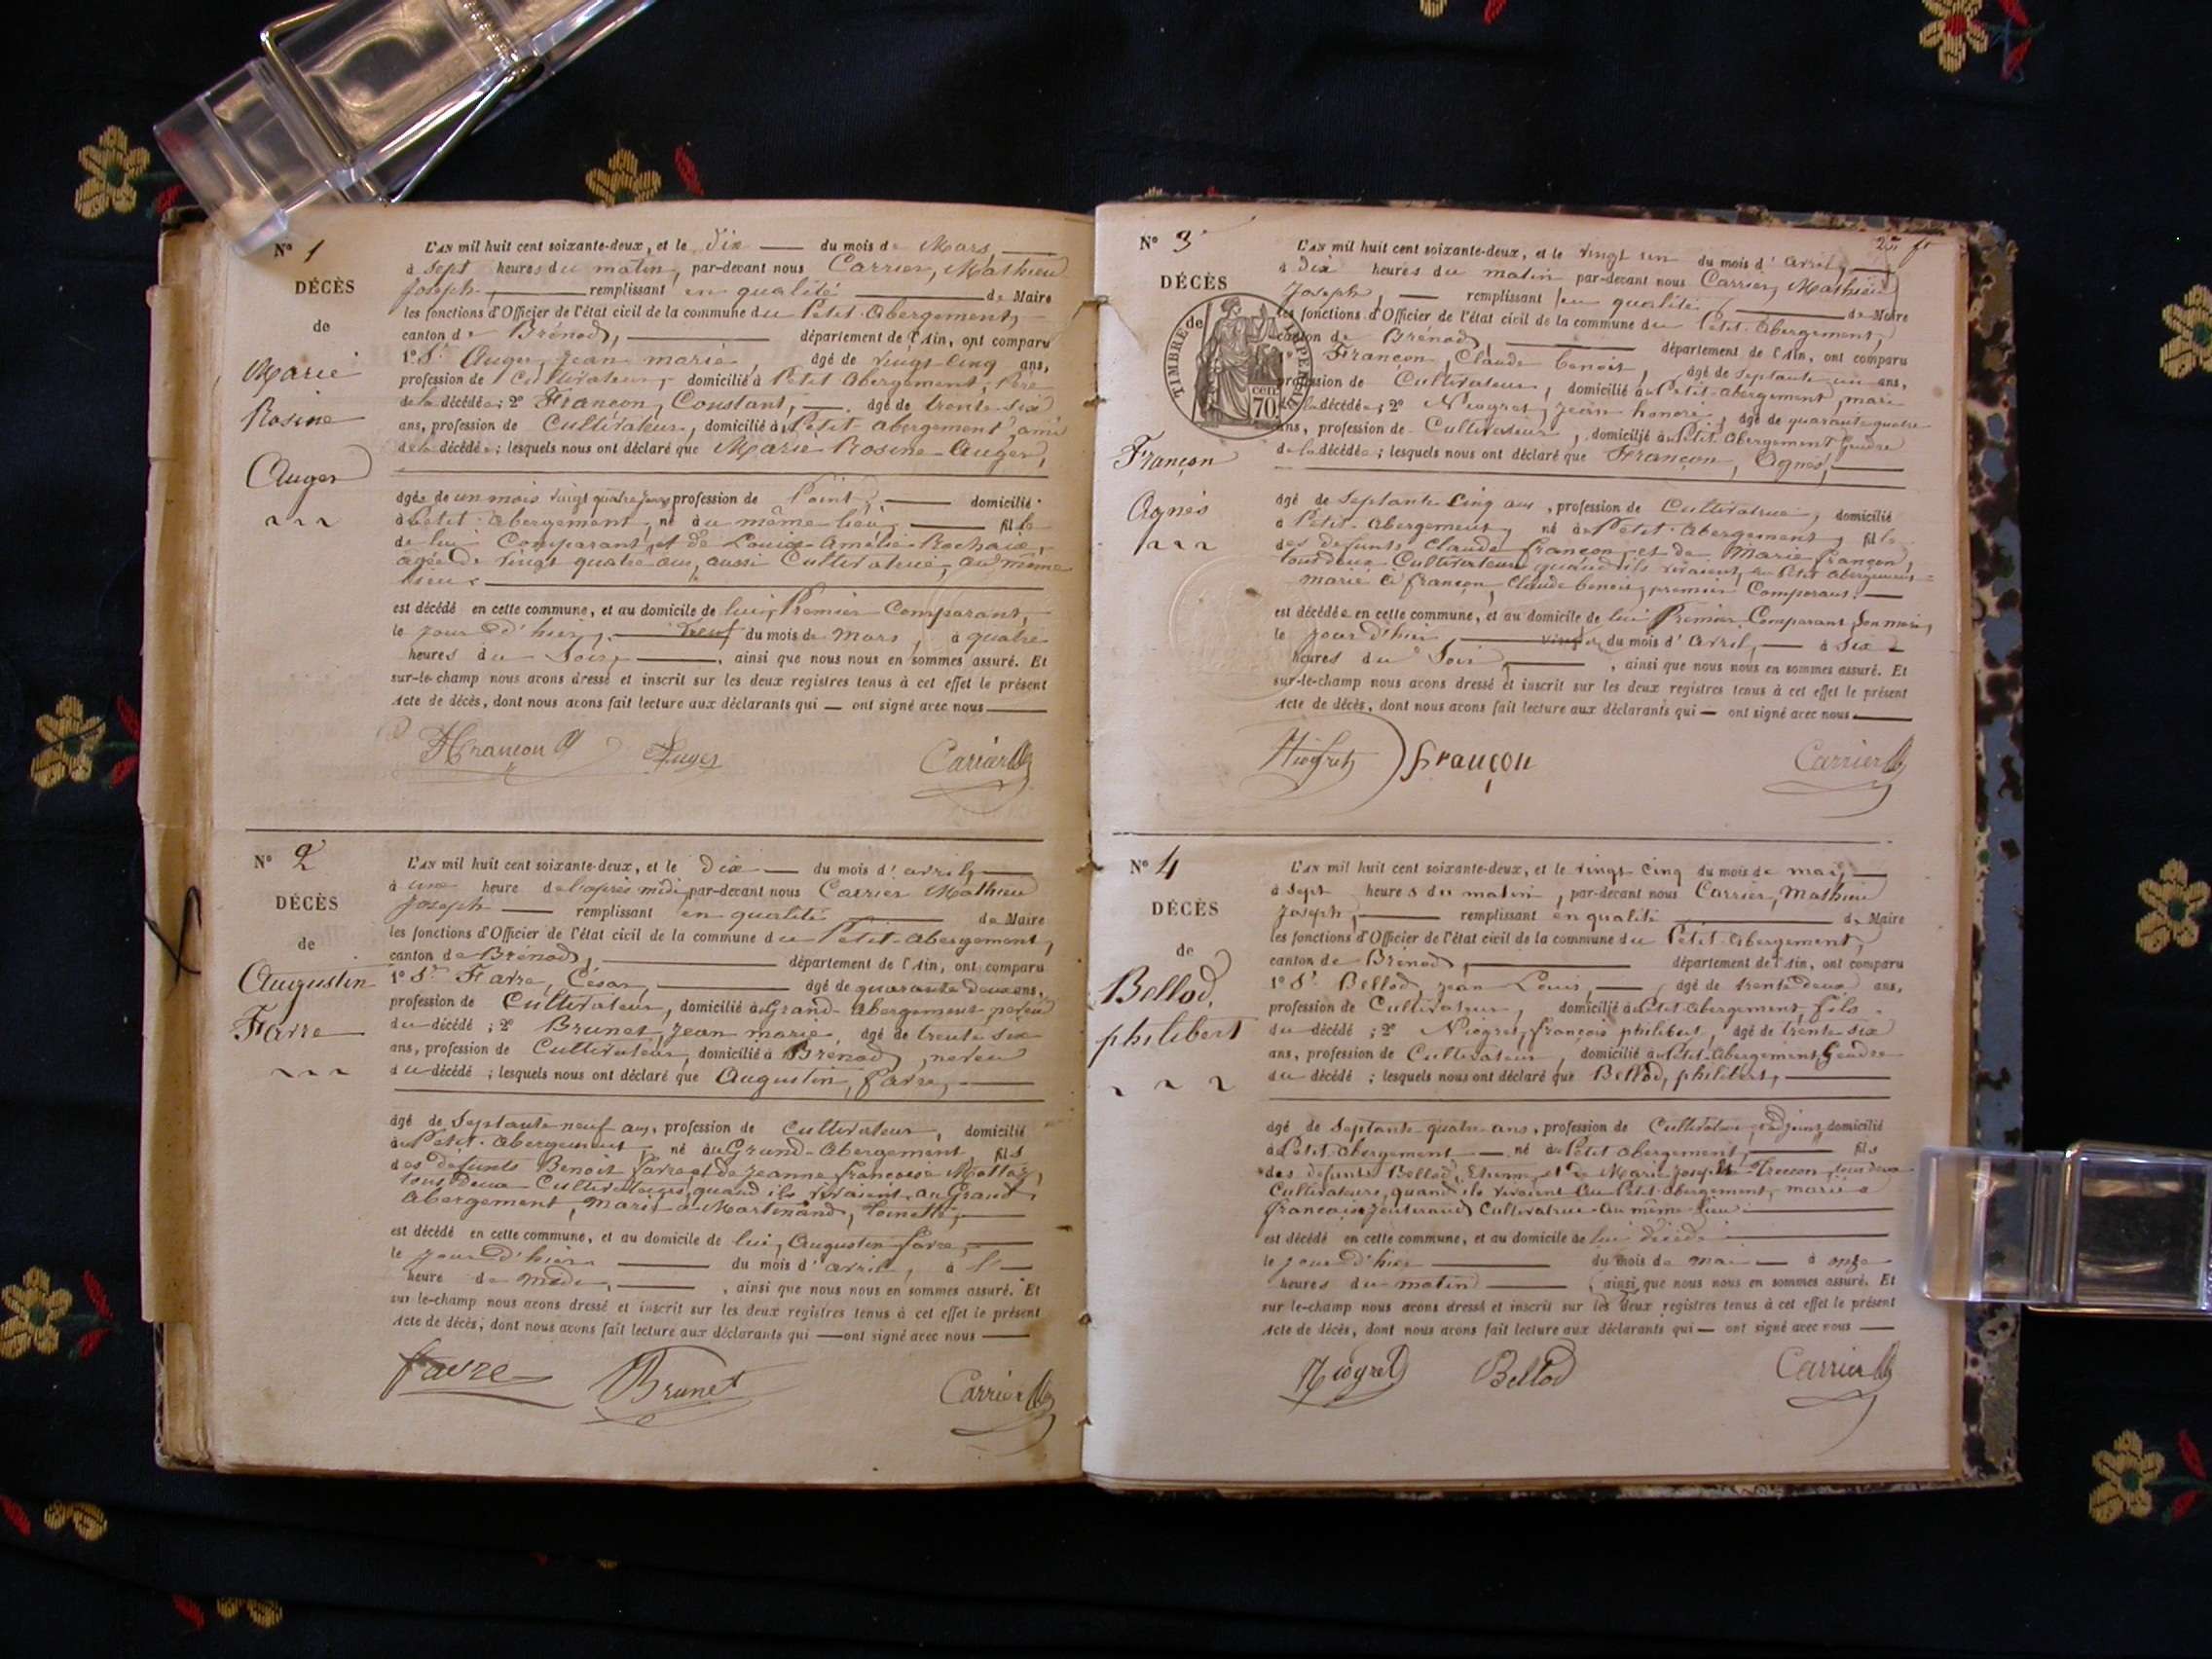 N° 1
DÉCÈS
de
Marie
Rosine
Auger
L'AN mil huit cent soixante-deux, et le dix du mois de Mars,
à sept heures du matin, par-devant nous Carrier, Mathieu
Joseph, remplissant en qualité de Maire
les fonctions d'Officier de l'état civil de la commune du Petit-Abergement,
canton de Brénod, département de l'Ain, ont comparu
1° Sr. Auger, Jean marie, âgé de vingt cinq ans,
profession de Cultivateur, domicilié à Petit Abergement, Père
de la décédée; 2° Françon, Constant, âgé de trente six
ans, profession de Cultivateur, domicilié à Petit-abergement, ami
de la décédée; lesquels nous ont déclaré que Marie Rosine Auger,
âgée de un mois vingt quatre jours profession de Point, domicilié
à Petit-abergement, né à u même lieu, fille
de lui Comparant, et de Louise-Amélie-Rochaix,
agée de vingt quatre ans, aussi Cultivatrice, au même
lieu
est décédé en cette commune, et au domicile de lui, Premier Comparant,
le jour d'hier, neuf du mois de Mars, à quatre
heures du Soir, ainsi que nous nous en sommes assuré. Et
sur-le-champ nous avons dressé et inscrit sur les deux registres tenus à cet effet le présent
Acte de décès, dont nous avons fait lecture aux déclarants qui ont signé avec nous
Françon Auger Carrier
N° 2
DÉCÈS
de
Augustin
Favre
L'AN mil huit cent soixante-deux, et le Dix du mois d'avril,
à une heure de l'après midi, par-devant nous Carrier Mathieu
Joseph remplissant en qualité de Maire
les fonctions d'Officier de l'état civil de la commune du Petit-Abergement,
canton de Brénod, département de l'Ain, ont comparu
1° Sr. Favre, César, âgé de quarante deux ans,
profession de Cultivateur, domicilié à u Grand-Abergement, neveu
du décédé; 2° Brunet, Jean marie, âgé de trente six
ans, profession de Cultivateur, domicilié à Brénod, neveu
du décédé; lesquels nous ont déclaré que Augustin, favre,
âgé de Septante neuf ans, profession de Cultivateur, domicilié
à u Petit-Abergement, né à u Grand-Abergement, fils
des défunts Benoit favre, et de Jeanne françoise
tous deux Cultivateurs, quand ils vivaient, au Grand
Abergement, Marié à Martinand, toinette,
est décédé en cette commune, et au domicile de lui, Augustin favre,
le jour d'hier du mois d'avril, à l'
heure de midi, ainsi que nous nous en sommes assuré. Et
sur le-champ nous avons dressé et inscrit sur les deux registres tenus à cet effet le présent
Acte de décès, dont nous avons fait lecture aux déclarants qui ont signé avec nous
favre Brunet Carrier
N° 3
DÉCÈS
de
TIMBRE IMPERIAL
70 cen
Françon
Agnès
L'AN mil huit cent soixante-deux, et le vingt un du mois d'avril,
à dix heures du matin par-devant nous Carrier, Mathieu
Joseph, remplissant en qualité de Maire
les fonctions d'Officier de l'état civil de la commune du Petit-Abergement,
canton de Brénod, département de l'Ain, ont comparu
1° Françon, Claude benoit, âgé de septante un ans,
profession de Cultivateur, domicilié à u Petit-abergement, mari
de la décédée; 2° Niogret, Jean honoré, âgé de quarante quatre
ans, profession de Cultivateur, domicilié à u Petit-Abergement Gendre
de la décédée; lesquels nous ont déclaré que Françon, Agnès,
âgé de Septante Cinq ans, profession de Cultivatrice, domicilié
à Petit-Abergement, né à u Petit-Abergement, fille
des defunts Claude françon, et de Marie françon,
tous deux Cultivateurs quand ils vivaient, au Petit abergement
marié à françon, Claude benoit, premier Comparant.
est décédée en cette commune, et au domicile de lui Premier Comparant, son mari,
le jour d'hier, vingt du mois d'Avril, à six
heures du Soir, ainsi que nous nous en sommes assuré. Et
sur-le-champ nous avons dressé et inscrit sur les deux registres tenus à cet effet le présent
Acte de décès, dont nous avons fait lecture aux déclarants qui ont signé avec nous
Niogret françon Carrier
N° 4
DÉCÈS
de
Bellod,
philibert
L'AN mil huit cent soixante-deux, et le vingt Cinq du mois de mai,
à sept heures du matin, par-devant nous Carrier, Mathieu
Joseph, remplissant en qualité de Maire
les fonctions d'Officier de l'état civil de la commune du Petit-Abergement,
canton de Brénod, département de l'Ain, ont comparu
1° Sr. Bellod, Jean Louis, âgé de trente deux ans,
profession de Cultivateur, domicilié à u Petit abergement, fils
du décédé; 2° Niogret, françois philibert, âgé de trente six
ans, profession de Cultivateur, domicilié à u Petit-Abergement, Gendre
du décédé; lesquels nous ont déclaré que Bellod, philibert,
âgé de Septante quatre ans, profession de Cultivateur, adjoint, domicilié
à Petit-Abergement né à u Petit abergement, fils
des defunts Bellod, Etienne, et de Marie Josephte tous deux
Cultivateurs, quand ils vivaient au Petit-Abergement, marié à
françoise Cultivatrice au même lieu
est décédé en cette commune, et au domicile de lui décédé
le jour d'hier du mois de mai à onze
heures du matin ainsi que nous nous en sommes assuré. Et
sur le-champ nous avons dressé et inscrit sur les deux registres tenus à cet effet le présent
Acte de décès, dont nous avons fait lecture aux déclarants qui ont signé avec nous
Niogret Bellod Carrier